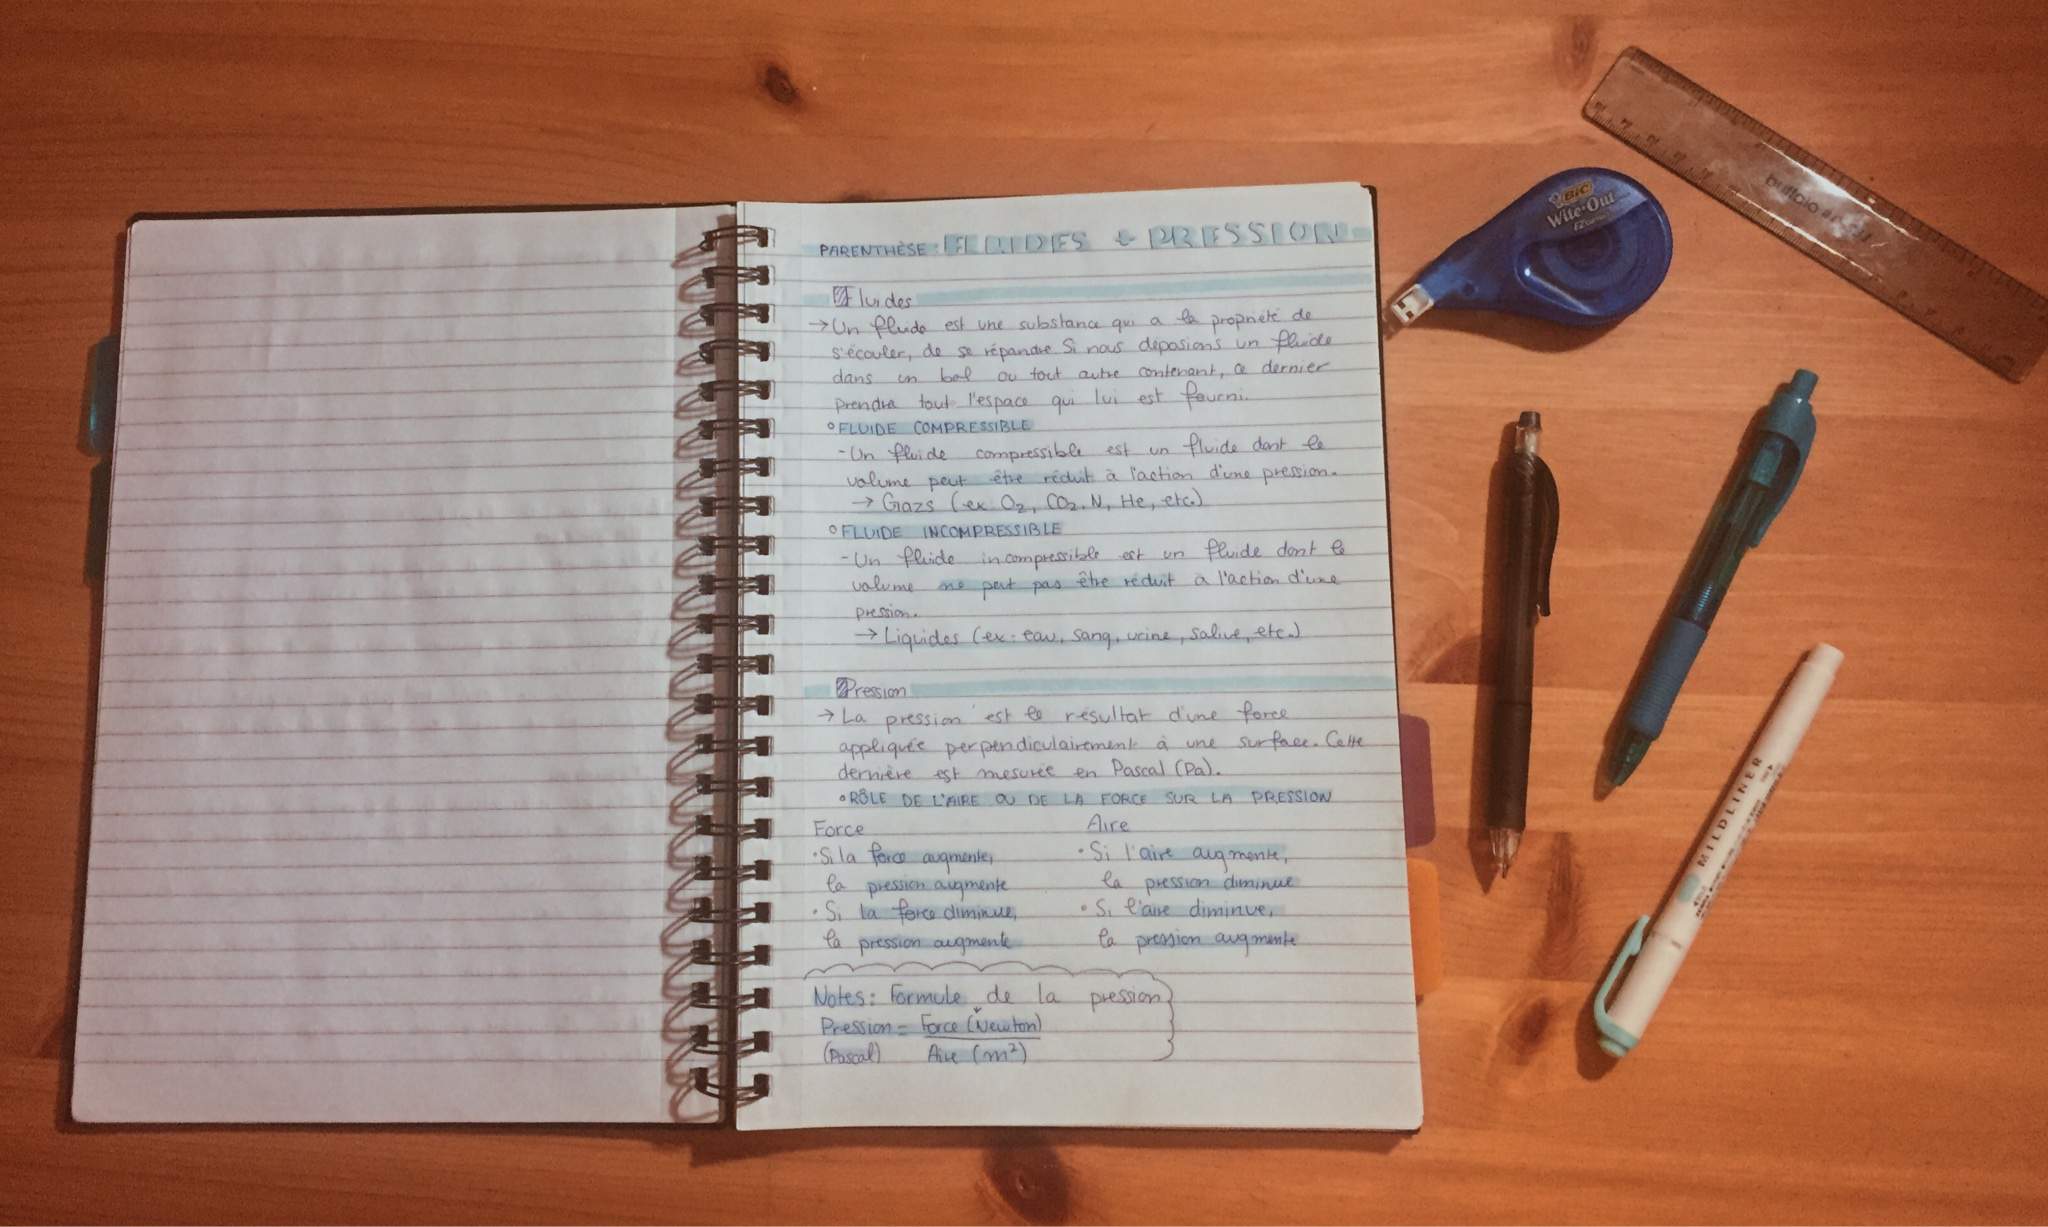 PARENTHÈSE: FLUIDES + PRESSION
Fluides
→ Un fluide est une substance qui a la propriété de
s'écouler, de se répandre Si nous déposions un fluide
dans un bol ou tout autre contenant, ce dernier
prendra tout l'espace qui lui est fourni.
° FLUIDE COMPRESSIBLE
- Un fluide compressible est un fluide dont le
volume peut être réduit à l'action d'une pression.
→ Gazs (ex: O₂, CO₂, N, He, etc.)
° FLUIDE INCOMPRESSIBLE
- Un fluide incompressible est un fluide dont le
volume ne peut pas être réduit à l'action d'une
pression.
→ Liquides (ex: eau, sang, urine, salive, etc.)
Pression
→ La pression est le résultat d'une force
appliquée perpendiculairement à une surface. Cette
dernière est mesurée en Pascal (Pa).
° RÔLE DE L'AIRE OU DE LA FORCE SUR LA PRESSION
Force
• Si la force augmente,
la pression augmente
• Si la force diminue,
la pression augmente
Aire
• Si l'aire augmente,
la pression diminue
• Si l'aire diminue,
la pression augmente
Notes: Formule de la pression
Pression = Force (Newton)
(Pascal) Aire (m²)
BIC
Wite-Out
MILDLINER